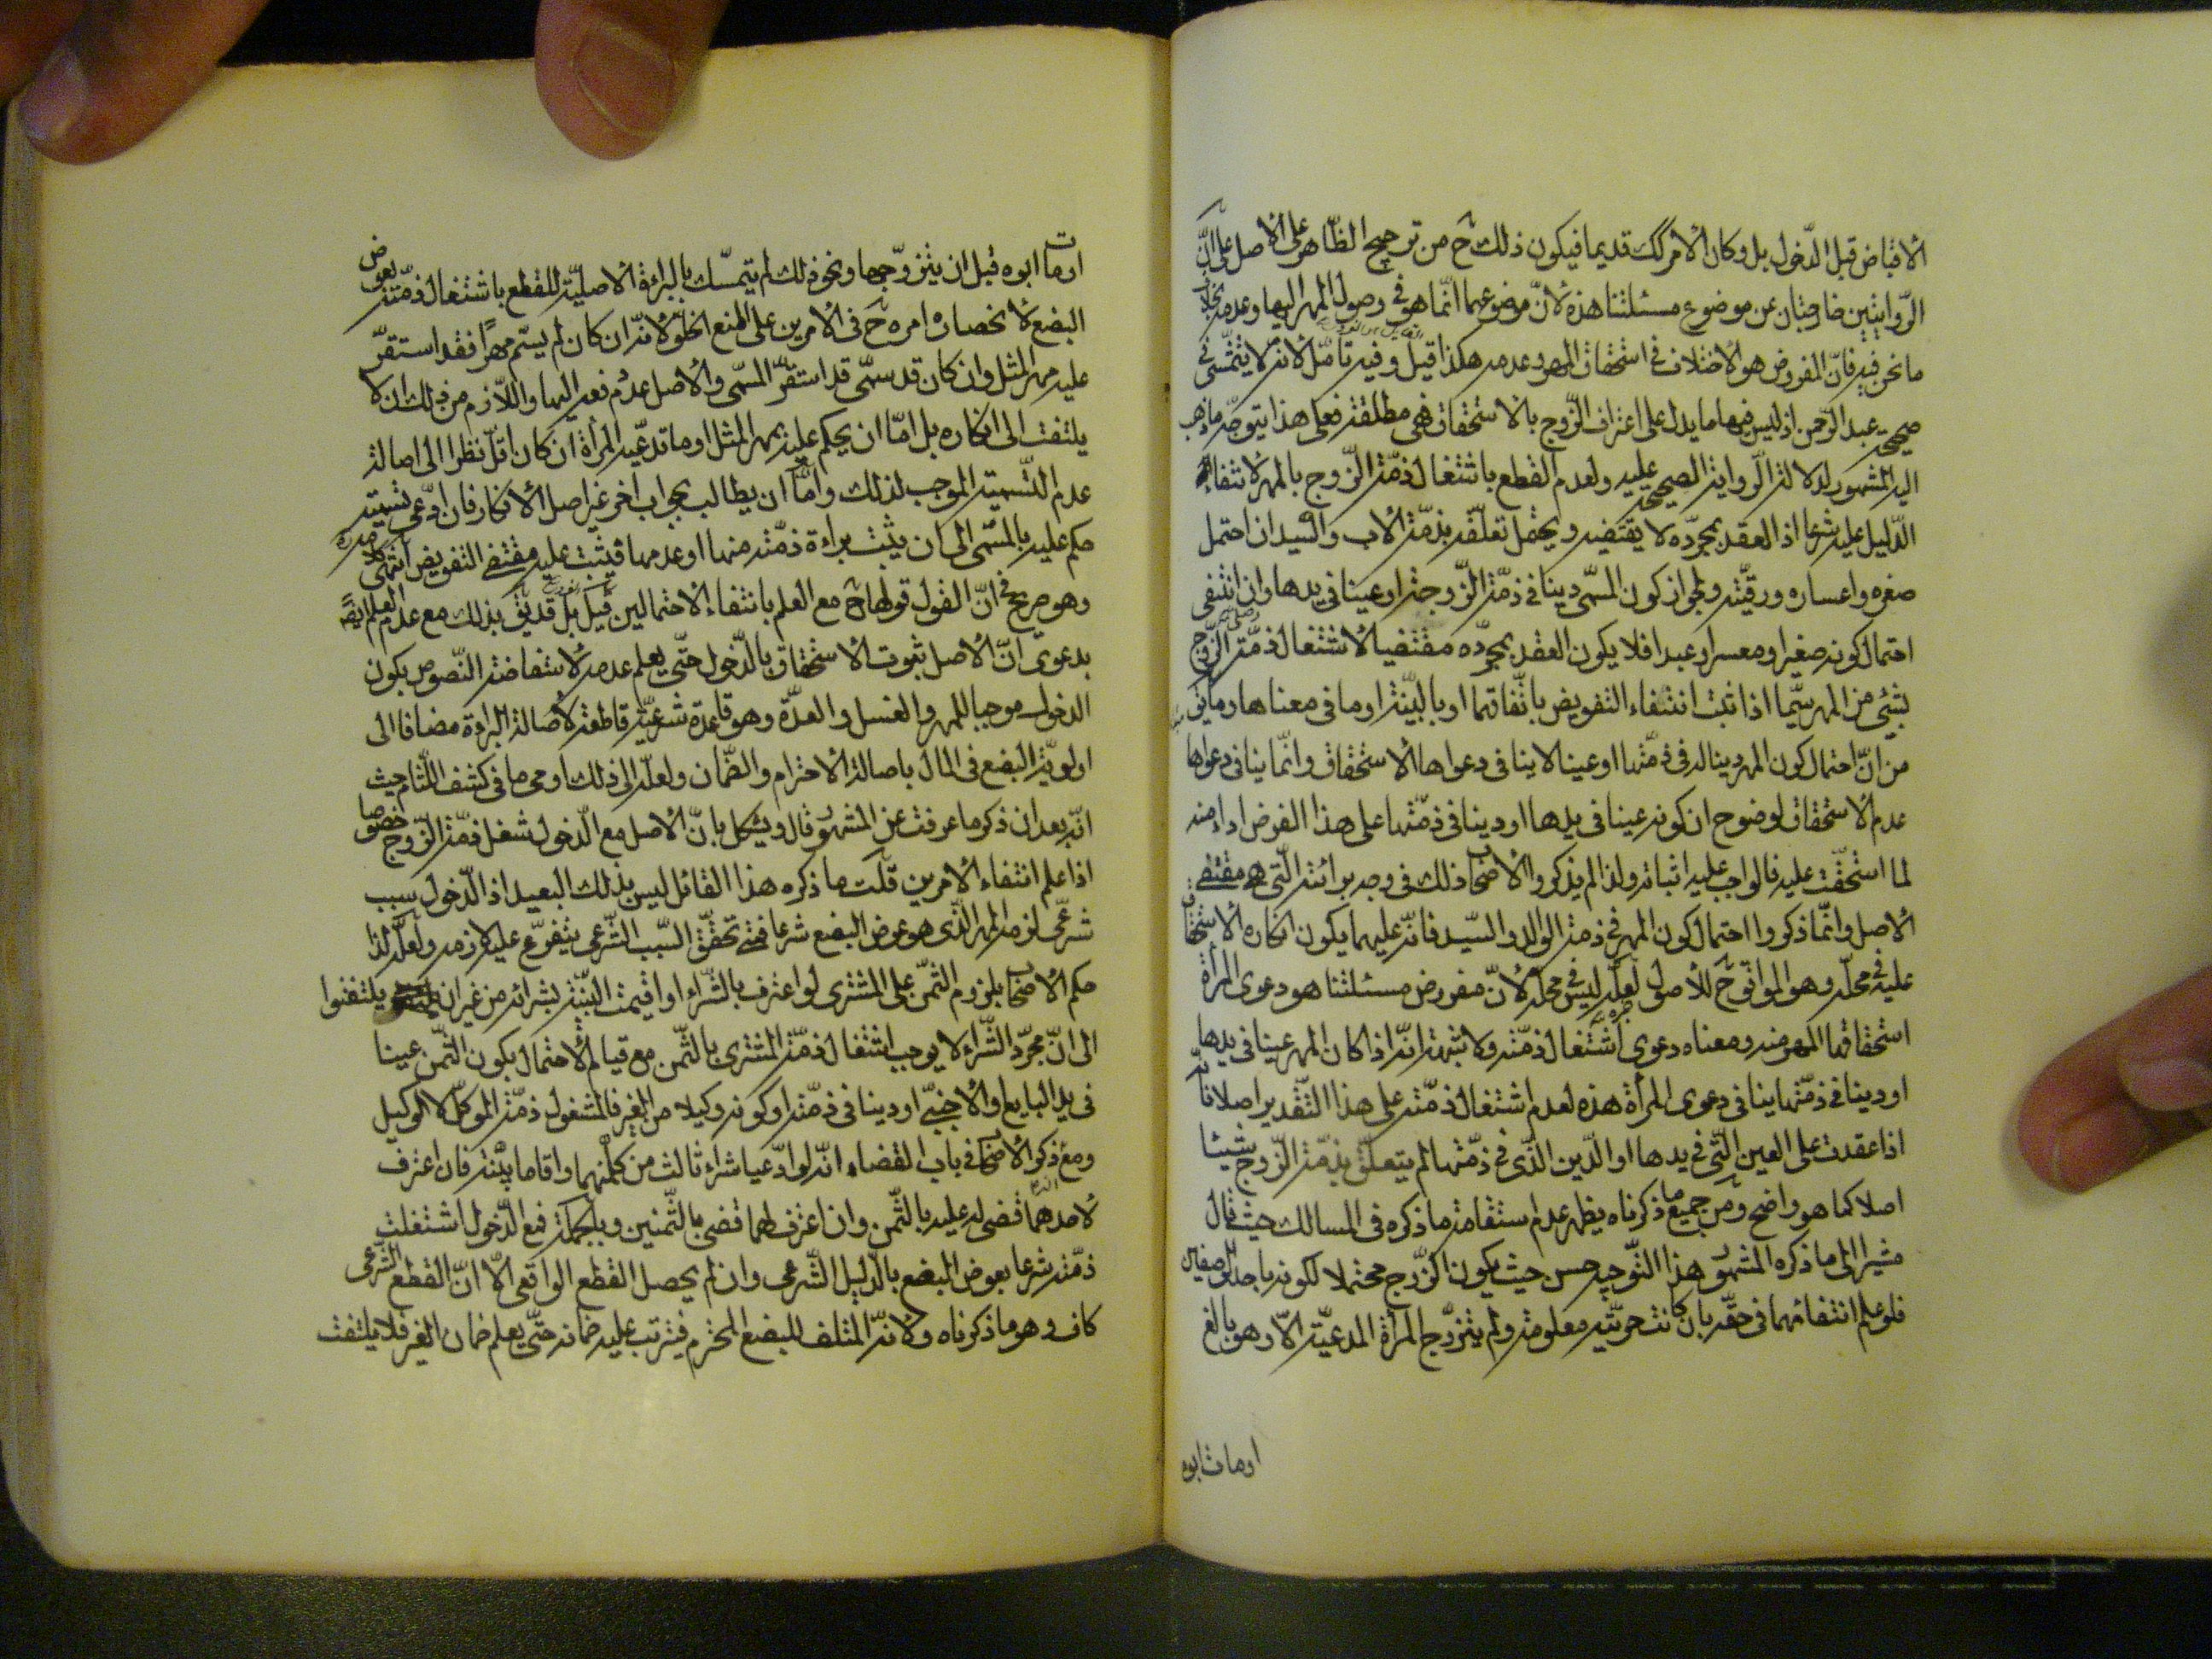 الاقباض قبل الدّخول بل وكان الامر كك قديما فيكون ذلك ح من ترجيح الظّاهر على الاصل على انّ
الرّوايتين خارجتان عن موضوع مسئلتنا هذه لانّ موضوعهما انّما هو فى وصول المهر اليها وعدمه بخلاف
ما نحن فيه فانّ المفروض هو الاختلاف فى استحقاق المهر وعدمه هكذا قيل وفيه تامّل لانّه لا يتمشّى فى
صحيحة عبد الرّحمن اذ ليس فيها ما يدل على اعتراف الزّوج بالاستحقاق فهى مطلقة فعلى هذا يتوجّه ما ذهب
اليه المشهور لدلالة الرّواية الصحيحة عليه ولعدم القطع باشتغال ذمّة الزّوج بالمهر لانتفاء
الدّليل عليه شرعا اذ العقد بمجرّده لا يقتضيه ويحتمل تعلّقه بذمّة الاب والسّيد ان احتمل
صغره واعساره ورقيّته ولجواز كون المسمّى دينا فى ذمّة الزّوجة او عينا فى يدها وان انتفى
احتمال كونه صغيرا ومعسرا وعبدا فلا يكون العقد بمجرّده مقتضيا لاشتغال ذمّة الزّوج
بشئ من المهر سيّما اذا ثبت انتفاء التفويض باتّفاقهما او بالبيّنة او ما فى معناها وما يق
من انّ احتمال كون المهر دينا له فى ذمّتها او عينا لا ينافى دعواها الاستحقاق وانّما ينافى دعواها
عدم الاستحقاق لوضوح ان كونه عينا فى يدها او دينا فى ذمّتها على هذا الفرض اداء منه
لما استحقّت عليه فالواجب عليه اثباته ولذا لم يذكروا الاصحاب ذلك فى وجه برائته الّتى هى مقتضى
الاصل وانّما ذكروا احتمال كون المهر فى ذمة الوالد والسّيد فانّه عليهما يكون انكاره الاستحقاق
عليه فى محلّه وهو الموافق ح للأصول لعلّه ليس فى محلّه لانّ مفروض مسئلتنا هو دعوى المرأة
استحقاقها المهر منه ومعناه دعوى اشتغال ذمّته ولا شبهة انّه اذا كان المهر عينا فى يدها
او دينا فى ذمّتها ينافى دعوى المرأة هذه لعدم اشتغال ذمّته على هذا التّقدير اصلا فانّه
اذا عقدت على العين الّتى فى يدها او الّدين الّذى فى ذمّتها لم يتعلّق بذمّة الزّوج شيئا
اصلا كما هو واضح ومن جميع ما ذكرناه يظهر عدم استقامة ما ذكره فى المسالك حيث قال
مشيرا الى ما ذكره المشهور هذا التّوجيه حسن حيث يكون الزّوج محتملا لكونه باحد الوصفين
فلو علم انتفائهما فى حقّه بان كانت حريّته معلومة ولم يتزوّج المرأة المدعيّة الّا وهو بالغ
اومات ابوه
اومات ابوه قبل ان يتزوّجها ونحو ذلك لم يتمسّك بالبراءة الاصليّة للقطع باشتغال ذمّته بعوض
البضع لانحصار امره ح فى الامرين على المنع الخلوّ لانّه ان كان لم يسمّ مهرًا فقد استقرّ
عليه مهر المثل وان كان قد سمّى قد استقرّ المسمّى والاصل عدم دفعه اليها واللّازم من ذلك ان لا
يلتفت الى انكاره بل امّا ان يحكم عليه بمهر المثل او ما تدّعيه المرأة ان كان اقلّ نظرا الى اصالة
عدم التّسمية الموجب لذلك وامّا ان يطالب بجواب اخر غير اصل الانكار فان ادّعى تسميته
حكم عليه بالمسمّى الى ان يثبت براءة ذمّته منها او عدمها فيثبت عليه مقتضى التفويض انتهى كلامه
وهو صريح فى انّ القول قولها ح مع العلم بانتفاء الاحتمالين قيل بل قد يق بذلك مع عدم العلم ايضً
بدعوى انّ الاصل ثبوت الاستحقاق بالدّخول حتّى يعلم عدمه لاستفاضة النّصوص بكون
الدخول موجبا للمهر والغسل والعدّة وهو قاعدة شرعيّة قاطعة لاصالة البراءة مضافا الى
اولويّة البضع فى المال باصالة الاحترام والضّمان ولعلّه الى ذلك اومى ما فى كشف اللّثام حيث
انّه بعد ان ذكر ما عرفت عن المشهور قال ويشكل بانّ الاصل مع الدّخول شغل ذمّة الزّوج خصوصا
اذا علم انتفاء الامرين قلت ما ذكره هذا القائل ليس بذلك البعيد اذ الدّخول سبب
شرعّى لزمه المهر الّذى هو عوض البضع شرعا فمتى تحقّق السّبب الشّرعى يتفرّع عليه لازمه ولعلّه لذا
حكم الاصحاب بلزوم الثّمن على المشترى لو اعترف بالشّراء او اقيمت البيّنة بشرائه من غير ان يلتفتوا
الى انّ مجرّد الشّراء لا يوجب اشتغال ذمّة المشترى بالثّمن مع قيام الاحتمال بكون الثّمن عينا
فى يد البايع والاجنبى او دينا فى ذمّته او كونه وكيلا من الغير فالمشغول ذمّة الموكّل لا الوكيل
ومع ذكر الاصحاب فى باب القضاء انّه لو ادّعيا شراء ثالث من كلّ منهما واقاما بيّنة فان اعترف
لاحدهما قضى له عليه بالثّمن وان اعترف لهما قضى بالثّمنين وبالجملة فمع الدّخول اشتغلت
ذمّته شرعا بعوض البضع بالدّليل الشّرعى وان لم يحصل القطع الواقعى الّا انّ القطع الشّرعى
كاف وهو ما ذكرناه ولانّه المتلف للبضع المحترم فيترتب عليه ضمانه حتّى يعلم ضمان الغير فلا يلتفت